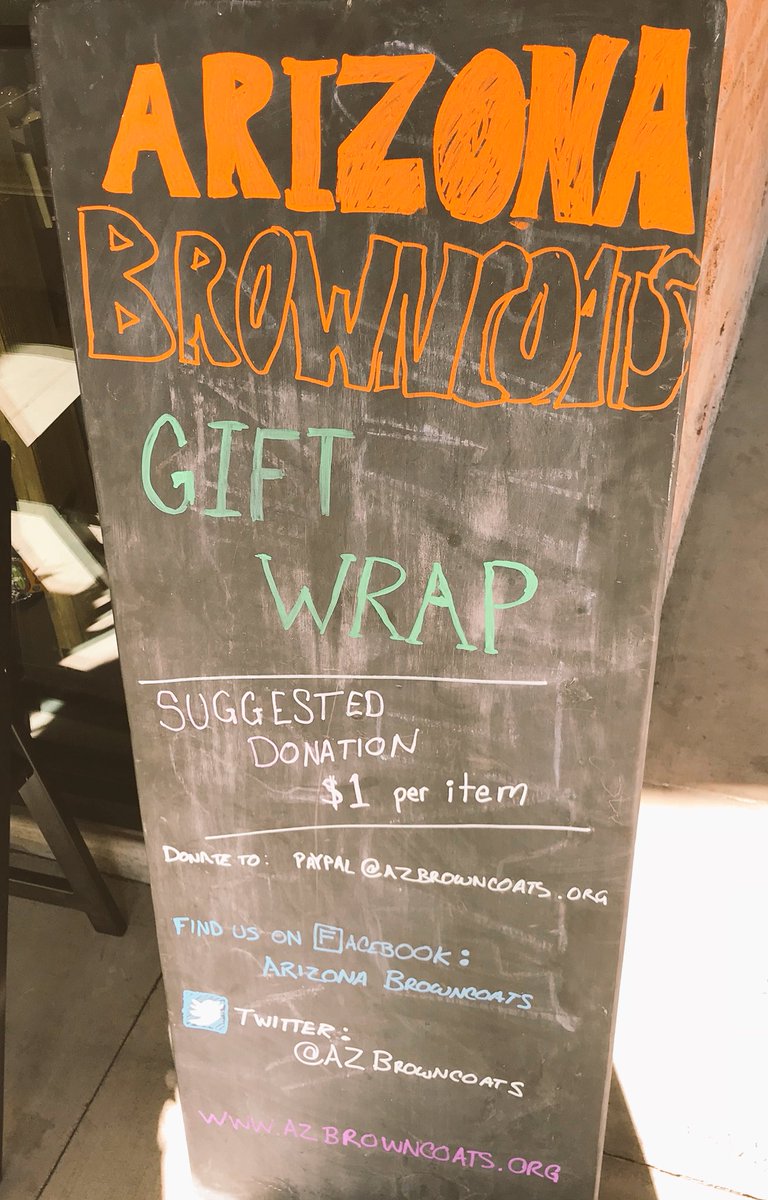 ARIZONA
BROWNCOATS
GIFT
WRAP
SUGGESTED
DONATION
$1 per item
DONATE TO: PAYPAL@AZBROWNCOATS.ORG
FIND US ON FACEBOOK:
ARIZONA BROWNCOATS
TWITTER:
@AZBROWNCOATS
WWW.AZBROWNCOATS.ORG